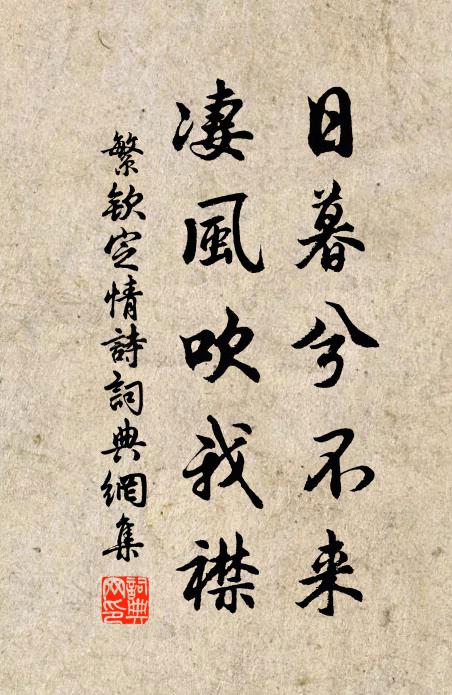 日暮兮不来
淒風吹我襟
繁欽定情詩詞典網集
詞典网印